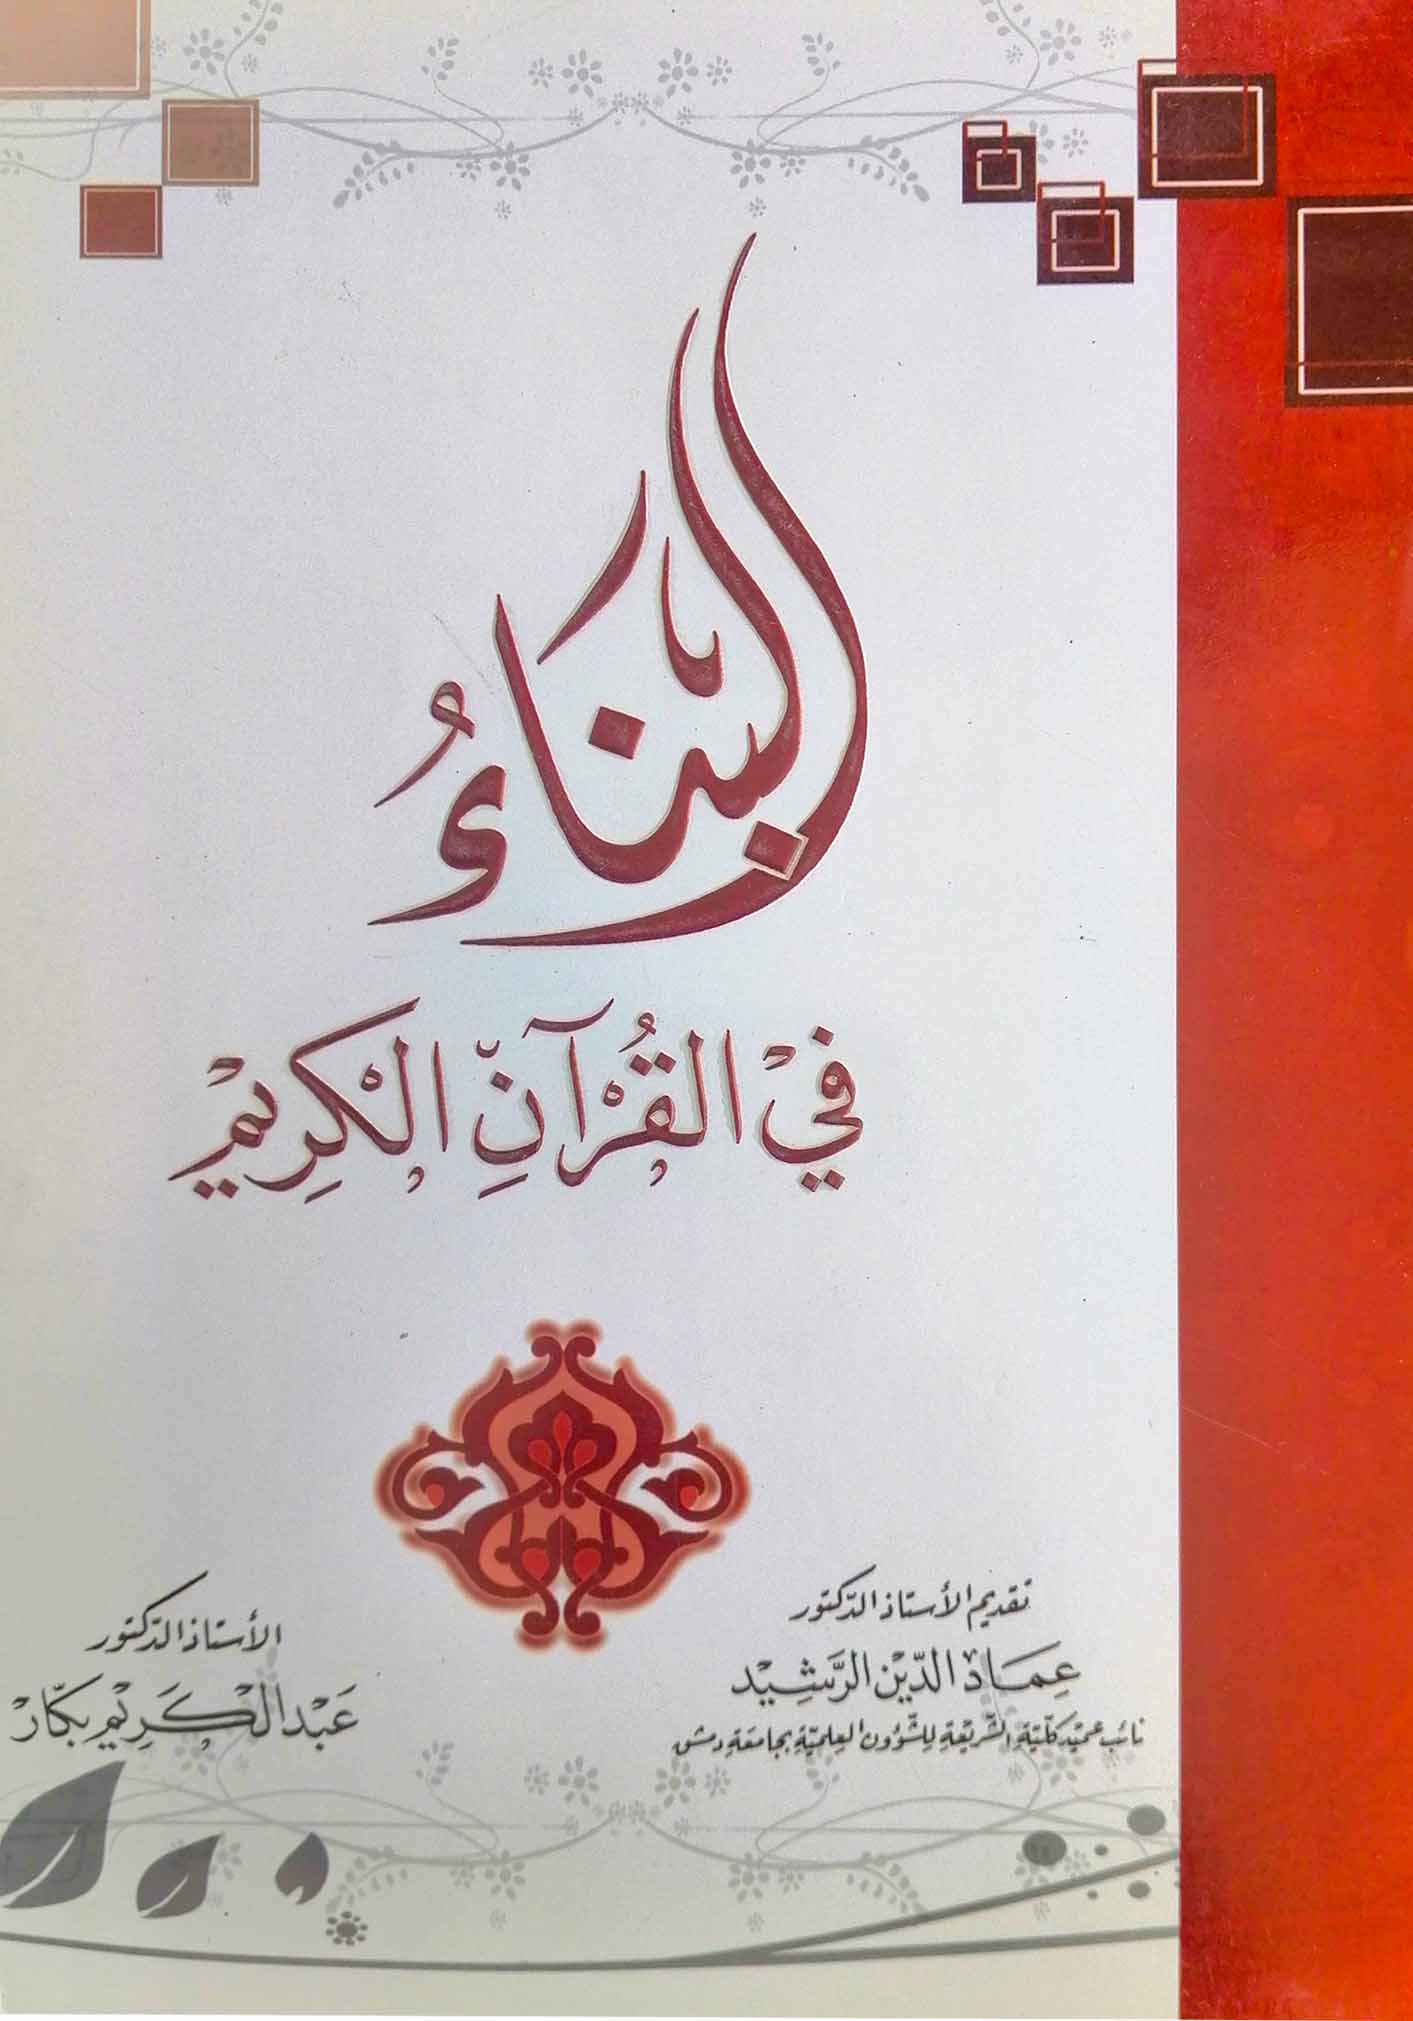 البناءُ
في القُرْآنِ الكَرِيْم
تقديم الأستاذ الدّكتور
عِمَادُ الدِّيْن الرَّشِيْد
نائب عميد كليّة الشّريعة للشّؤون العلميّة بجامعة دمشق
الأستاذ الدّكتور
عَبْد الكَرِيْم بكّار